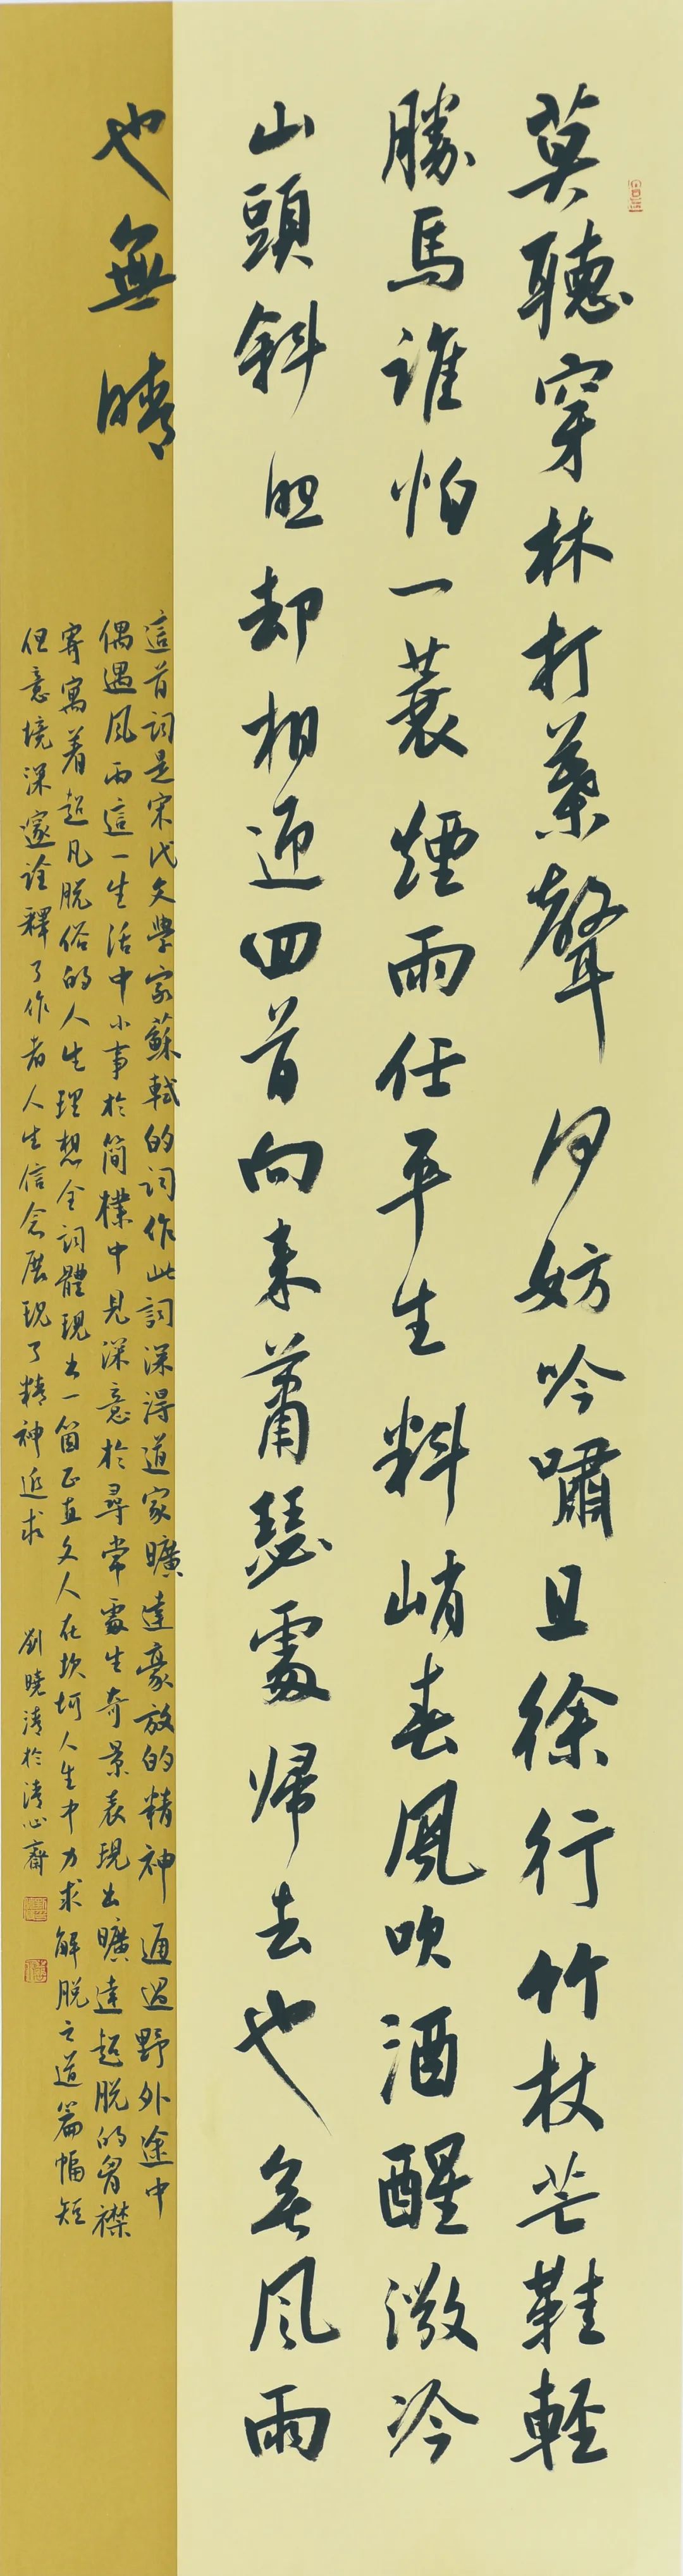 莫聽穿林打葉聲何妨吟嘯且徐行竹杖芒鞋輕
勝馬誰怕一蓑煙雨任平生料峭春風吹酒醒微冷
山頭斜照却相迎回首向来蕭瑟處歸去也無風雨
也無晴
這首詞是宋代文學家蘇軾的詞作此詞深得道家曠達豪放的精神通過野外途中
偶遇風雨這一生活中小事於簡樸中見深意於尋常處生奇景表現出曠達超脱的胸襟
寄寓着超凡脱俗的人生理想全詞體現出一箇正直文人在坎坷人生中力求解脱之道篇幅短
但意境深邃詮釋了作者人生信念展現了精神追求
劉曉清於清心齋